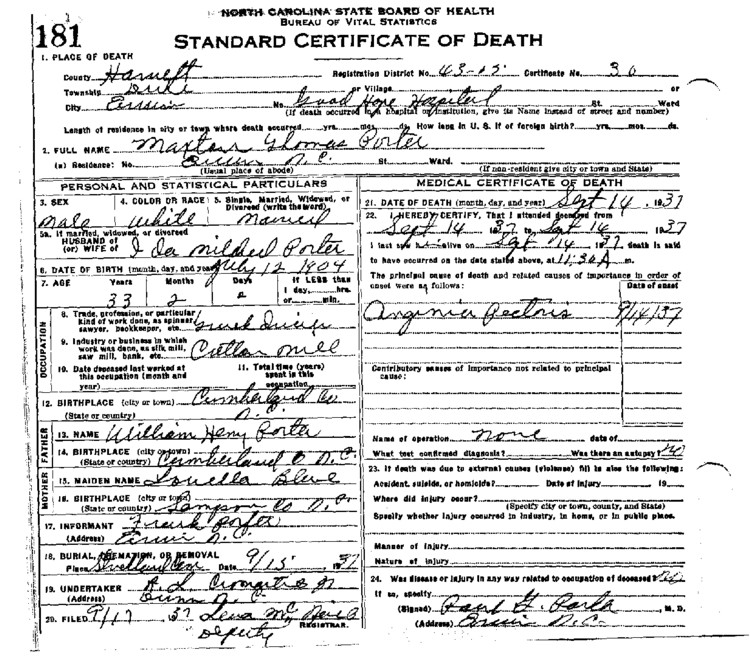 NORTH CAROLINA STATE BOARD OF HEALTH
BUREAU OF VITAL STATISTICS
181
STANDARD CERTIFICATE OF DEATH
1. PLACE OF DEATH
County Harnett Registration District No. 43-25 Certificate No. 30
Township Duke or Village or
City Erwin No. Good Hope Hospital St. Ward
(If death occurred in a hospital or institution, give its Name instead of street and number)
Length of residence in city or town where death occurred yrs. mos. ds. How long in U. S. if of foreign birth? yrs. mos. ds.
2. FULL NAME Thomas Porter
(a) Residence: No. Erwin N.C. St. Ward.
(Usual place of abode) (If non-resident give city or town and State)
PERSONAL AND STATISTICAL PARTICULARS
3. SEX 4. COLOR OR RACE 5. Single, Married, Widowed, or Divorced (write the word)
Male White Married
5a. If married, widowed, or divorced
HUSBAND of
(or) WIFE of Ida Mildred Porter
6. DATE OF BIRTH (month, day, and year) July 12 1904
7. AGE Years Months Days If LESS than
1 day, hrs.
33 2 2 or min.
OCCUPATION
8. Trade, profession, or particular
kind of work done, as spinner,
sawyer, bookkeeper, etc.
9. Industry or business in which
work was done, as silk mill,
saw mill, bank, etc. Cotton Mill
10. Date deceased last worked at
this occupation (month and
year)
11. Total time (years)
spent in this
occupation
12. BIRTHPLACE (city or town) Cumberland Co
(State or country) N.C.
FATHER
13. NAME William Henry Porter
14. BIRTHPLACE (city or town)
(State or country) Cumberland Co N.C.
MOTHER
15. MAIDEN NAME Louella
16. BIRTHPLACE (city or town)
(State or country) Sampson Co N.C.
17. INFORMANT Frank Porter
(Address) Erwin N.C.
18. BURIAL, CREMATION, OR REMOVAL
Place Date 9/15 1937
19. UNDERTAKER
(Address) Dunn N.C.
20. FILED 9/17 37
Deputy REGISTRAR.
MEDICAL CERTIFICATE OF DEATH
21. DATE OF DEATH (month, day, and year) Sept 14, 1937
22. I HEREBY CERTIFY, That I attended deceased from
Sept 14 1937 to Sept 14 1937
I last saw him alive on Sept 14 1937 death is said
to have occurred on the date stated above, at 11:30 A m.
The principal cause of death and related causes of importance in order of
onset were as follows: Date of onset
Angina Pectoris 9/14/37
Contributory causes of importance not related to principal
cause:
Name of operation none date of
What test confirmed diagnosis? Was there an autopsy? No
23. If death was due to external causes (violence) fill in also the following:
Accident, suicide, or homicide? Date of injury 19
Where did injury occur?
(Specify city or town, county, and State)
Specify whether injury occurred in industry, in home, or in public place.
Manner of injury
Nature of injury
24. Was disease or injury in any way related to occupation of deceased? No
If so, specify
(Signed) Paul M. D.
(Address) Erwin N.C.